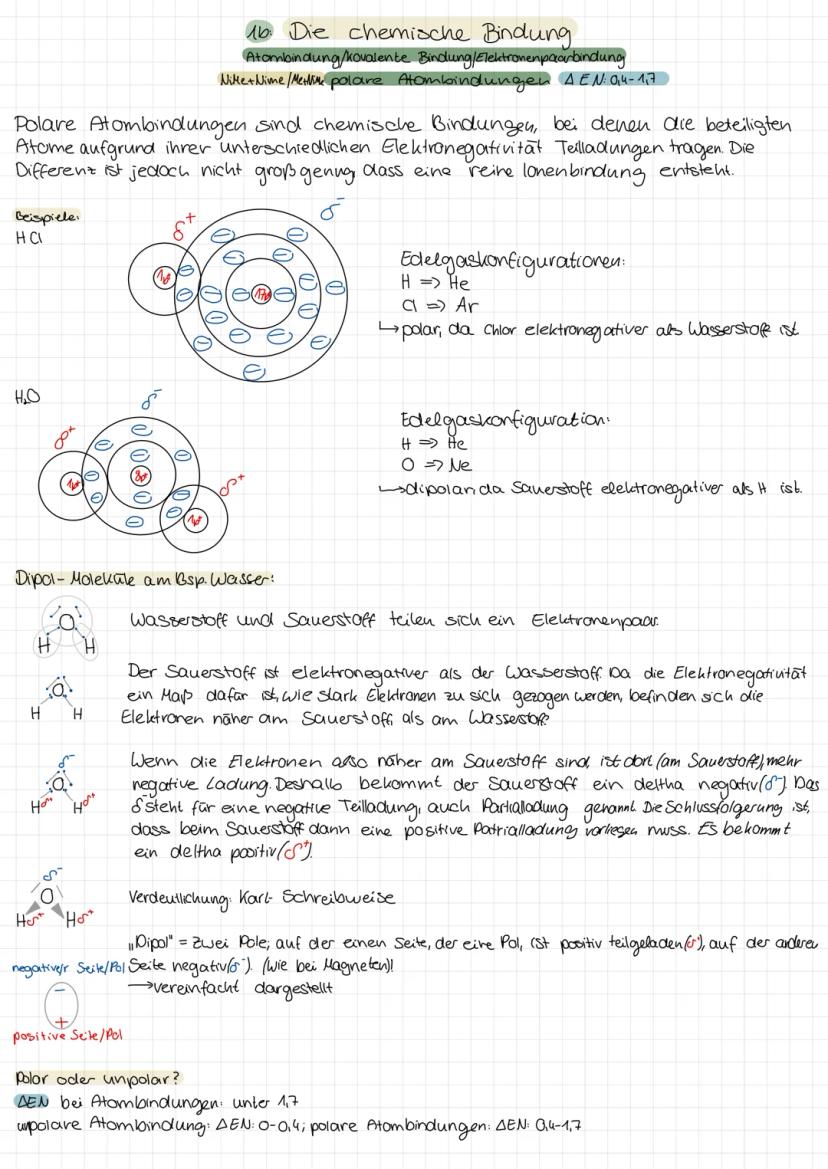 1b. Die chemische Bindung
Atombindung/kovalente Bindung/Elektronenpaarbindung
NiMe+Nime/Me+Nime polare Atombindungen Δ EN: 0,4-1,7
Polare Atombindungen sind chemische Bindungen, bei denen die beteiligten
Atome aufgrund ihrer unterschiedlichen Elektronegativität Teilladungen tragen. Die
Differenz ist jedoch nicht groß genug, dass eine reine Ionenbindung entsteht.
Beispiele:
HCl
δ+
δ-
1p+
17p+
Edelgaskonfigurationen:
H => He
Cl => Ar
↳ polar, da Chlor elektronegativer als Wasserstoff ist
H₂O
δ-
δ+
1p+
8p+
δ+
1p+
Edelgaskonfiguration:
H => He
O => Ne
↳ dipolar, da Sauerstoff elektronegativer als H ist.
Dipol-Moleküle am Bsp. Wasser:
O
H H
Wasserstoff und Sauerstoff teilen sich ein Elektronenpaar.
O
H H
Der Sauerstoff ist elektronegativer als der Wasserstoff. Da die Elektronegativität
ein Maß dafür ist, wie stark Elektronen zu sich gezogen werden, befinden sich die
Elektronen näher am Sauerstoff, als am Wasserstoff.
δ-
O
Hδ+ Hδ+
Wenn die Elektronen also näher am Sauerstoff sind, ist dort (am Sauerstoff) mehr
negative Ladung. Deshalb bekommt der Sauerstoff ein deltha negativ (δ-). Das
δ steht für eine negative Teilladung, auch Partialladung genannt. Die Schlussfolgerung ist,
dass beim Sauerstoff dann eine positive Patrialladung vorliegen muss. Es bekommt
ein deltha positiv (δ+).
δ-
O
Hδ+ Hδ+
Verdeutlichung: Karl- Schreibweise
„Dipol" = Zwei Pole; auf der einen Seite, der eine Pol, ist positiv teilgeladen (δ+), auf der anderen
Seite negativ (δ-). (Wie bei Magneten)!
→ vereinfacht dargestellt
negative/r Seite/Pol
-
+
positive Seite/Pol
Polar oder unpolar?
ΔEN bei Atombindungen: unter 1,7
unpolare Atombindung: ΔEN: 0-0,4; polare Atombindungen: ΔEN: 0,4-1,7